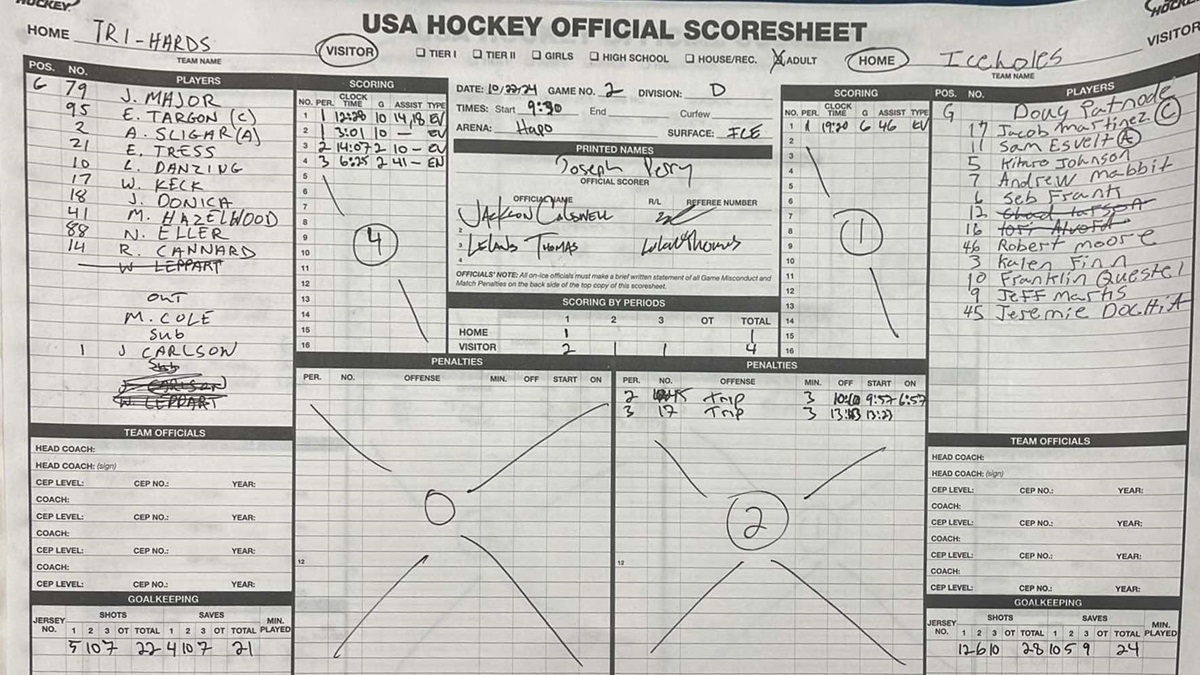 HOCKEY
USA HOCKEY OFFICIAL SCORESHEET
HOME TRI-HARDS VISITOR
TEAM NAME
TIER I TIER II GIRLS HIGH SCHOOL HOUSE/REC. ADULT
HOME Iceholes VISITOR
TEAM NAME
POS. NO. PLAYERS
G 79 J. MAJOR
95 E. TARGON (C)
2 A. SLIGAR (A)
21 E. TRESS
10 L. DANZING
17 W. KECK
18 J. DONICA
41 M. HAZELWOOD
88 N. ELLER
14 R. CANNARD
W LEPPART
OUT
M. COLE
SUB
1 J CARLSON
Sub
J CARLSON
W LEPPART
SCORING
NO. PER. CLOCK TIME G ASSIST TYPE
1 1 12:28 10 14,18 EV
2 1 3:01 10 – EV
3 2 14:07 2 10 – EV
4 3 6:25 2 41 – EN
5
6
7
8
9
10
11
12
13
14
15
16
4
DATE: 10/22/24 GAME NO. 2 DIVISION: D
TIMES: Start 9:30 End Curfew
ARENA: Hapo SURFACE: ICE
PRINTED NAMES
Joseph Perry
OFFICIAL SCORER
OFFICIAL NAME R/L REFEREE NUMBER
JACKSON
2
3 LELAND THOMAS
4
OFFICIALS' NOTE: All on-ice officials must make a brief written statement of all Game Misconduct and
Match Penalties on the back side of the top copy of this scoresheet.
SCORING BY PERIODS
1 2 3 OT TOTAL
HOME 1 1
VISITOR 2 1 1 4
SCORING
NO. PER. CLOCK TIME G ASSIST TYPE
1 1 19:20 6 46 EV
2
3
4
5
6
7
8
9
10
11
12
13
14
15
16
1
POS. NO. PLAYERS
G Doug Patnode
17 Jacob Martinez (C)
11 Sam Esvelt (A)
5 Kitaro Johnson
7 Andrew Mabbit
6 Seb Frantz
12
16 Tori Alvord
46 Robert Moore
3 Kalen Finn
10 Franklin Questel
9 Jeff Martis
45 Jeremie
PENALTIES
PER. NO. OFFENSE MIN. OFF START ON
0
12
PENALTIES
PER. NO. OFFENSE MIN. OFF START ON
2 Trip 3 9:57 6:57
3 17 Trip 3 13:23
2
12
TEAM OFFICIALS
HEAD COACH:
HEAD COACH: (sign)
CEP LEVEL: CEP NO.: YEAR:
COACH:
CEP LEVEL: CEP NO.: YEAR:
COACH:
CEP LEVEL: CEP NO.: YEAR:
COACH:
CEP LEVEL: CEP NO.: YEAR:
GOALKEEPING
SHOTS SAVES
JERSEY NO. 1 2 3 OT TOTAL 1 2 3 OT TOTAL MIN. PLAYED
5 10 7 22 4 10 7 21
TEAM OFFICIALS
HEAD COACH:
HEAD COACH: (sign)
CEP LEVEL: CEP NO.: YEAR:
COACH:
CEP LEVEL: CEP NO.: YEAR:
COACH:
CEP LEVEL: CEP NO.: YEAR:
COACH:
CEP LEVEL: CEP NO.: YEAR:
GOALKEEPING
SHOTS SAVES
JERSEY NO. 1 2 3 OT TOTAL 1 2 3 OT TOTAL MIN. PLAYED
12 6 10 28 10 5 9 24